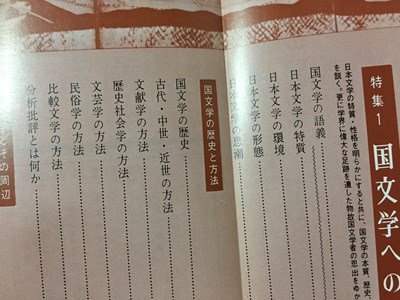 特集1
国文学への
日本文学の特質・性格を明らかにすると共に、国文学の本質、歴史、
を説く。更に学界に偉大な足跡を遺した物故国文学者の思い出をゆか
国文学の語義
日本文学の特質
日本文学の環境
日本文学の形態
日本文学の思潮
国文学の歴史と方法
国文学の歴史
古代・中世・近世の方法
文献学の方法
歴史社会学の方法
文芸学の方法
民俗学の方法
比較文学の方法
分析批評とは何か
その周辺